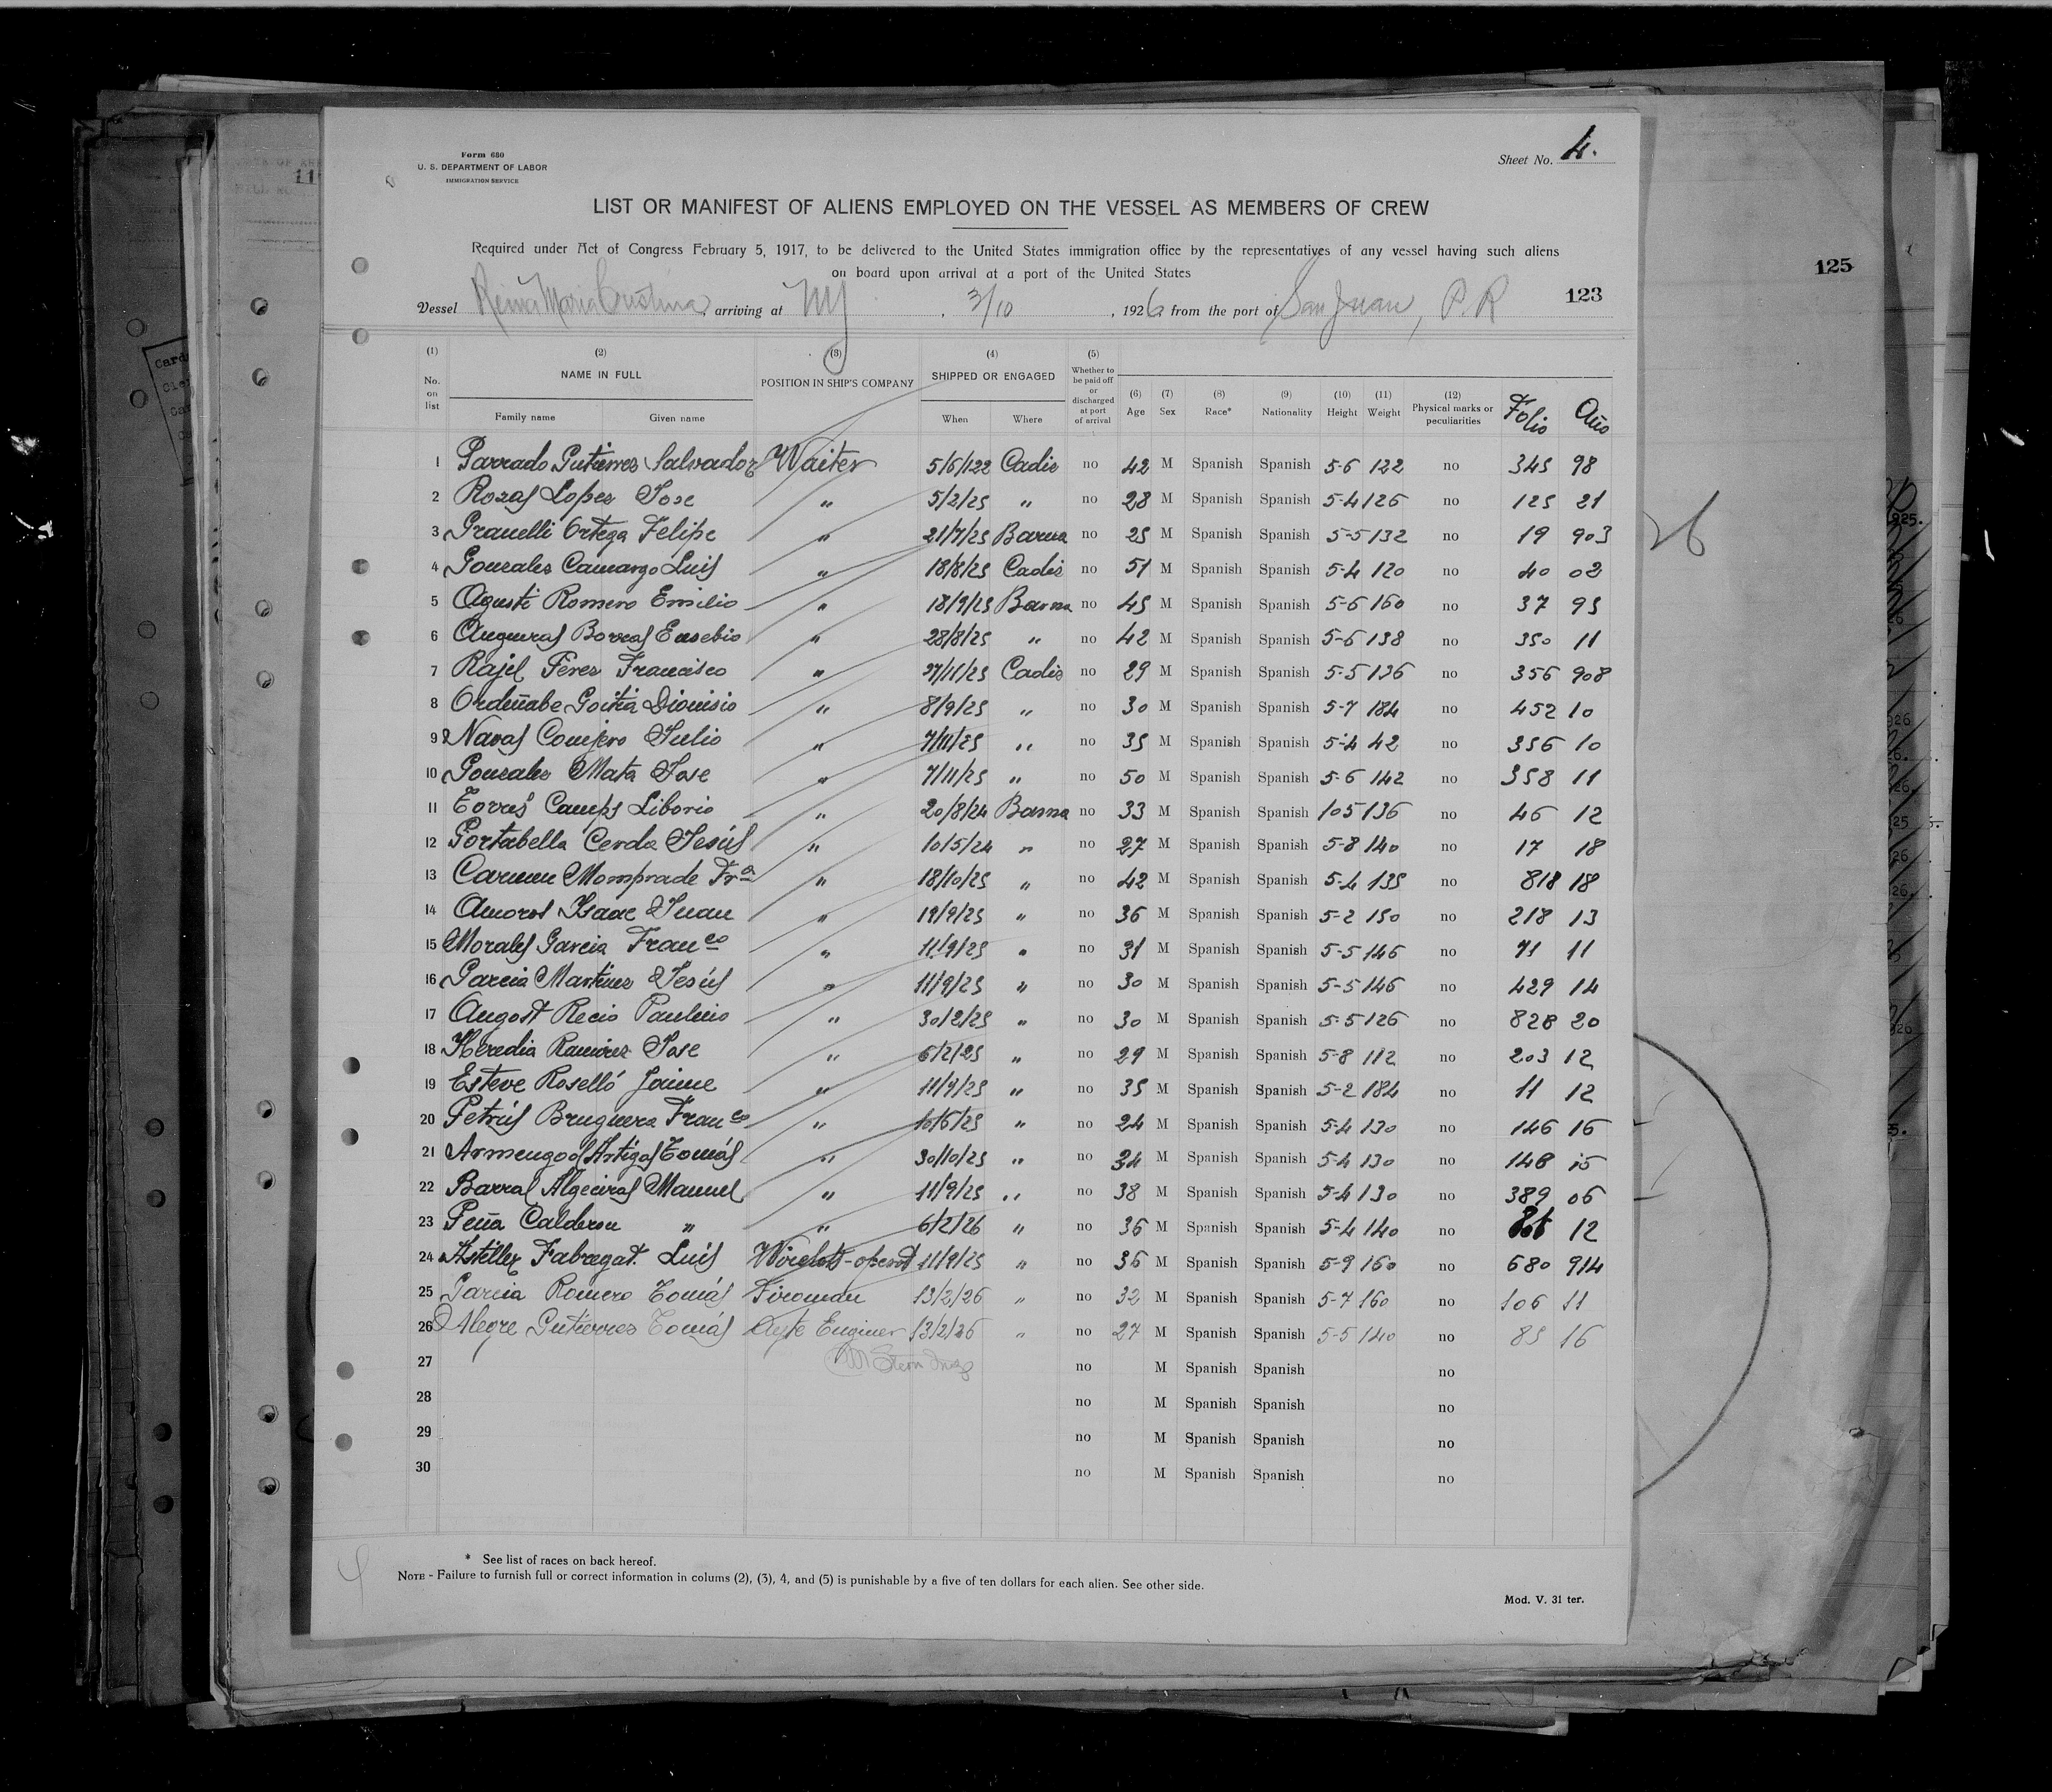 Form 680
U. S. DEPARTMENT OF LABOR
IMMIGRATION SERVICE
Sheet No. 4.
LIST OR MANIFEST OF ALIENS EMPLOYED ON THE VESSEL AS MEMBERS OF CREW
Required under Act of Congress February 5, 1917, to be delivered to the United States immigration office by the representatives of any vessel having such aliens
on board upon arrival at a port of the United States
125
123
Vessel Reina Maria Cristina, arriving at NY, 3/10, 1926, from the port of San Juan, P.R
(1) No. on list (2) NAME IN FULL Family name Given name (3) POSITION IN SHIP'S COMPANY (4) SHIPPED OR ENGAGED When Where (5) Whether to be paid off or discharged at port of arrival (6) Age (7) Sex (8) Race* (9) Nationality (10) Height (11) Weight (12) Physical marks or peculiarities Folio Año
1 Parrado Gutierres Salvador Waiter 5/6/122 Cadis no 42 M Spanish Spanish 5-6 122 no 345 98
2 Rosas Lopes Jose " 5/2/25 " no 28 M Spanish Spanish 5-4 126 no 125 21
3 Granelli Ortega Felipe " 21/7/25 Barna no 25 M Spanish Spanish 5-5 132 no 19 903
4 Gonsales Camargo Luis " 18/8/25 Cadis no 51 M Spanish Spanish 5-4 120 no 40 02
5 Agusti Romero Emilio " 18/9/25 Barna no 45 M Spanish Spanish 5-6 160 no 37 95
6 Borras Eusebio " 28/8/25 " no 42 M Spanish Spanish 5-6 138 no 350 11
7 Rajel Peres Francisco " 27/11/25 Cadis no 29 M Spanish Spanish 5-5 136 no 356 908
8 Ordeñabe Goitia Dionisio " 8/9/25 " no 30 M Spanish Spanish 5-7 184 no 452 10
9 Navas Conejero Julio " 7/11/25 " no 35 M Spanish Spanish 5-4 42 no 356 10
10 Gonsales Mata Jose " 7/11/25 " no 50 M Spanish Spanish 5-6 142 no 358 11
11 Torres Camps Liborio " 20/8/24 Barna no 33 M Spanish Spanish 105 136 no 46 12
12 Portabella Cerda Jesús " 10/5/24 " no 27 M Spanish Spanish 5-8 140 no 17 18
13 Carmen Momprade Frº " 18/10/25 " no 42 M Spanish Spanish 5-4 135 no 818 18
14 Amoros Isaac Juan " 19/9/25 " no 36 M Spanish Spanish 5-2 150 no 218 13
15 Morales Garcia Franco " 11/9/25 " no 31 M Spanish Spanish 5-5 146 no 71 11
16 Garcia Martines Jesús " 11/9/25 " no 30 M Spanish Spanish 5-5 146 no 429 14
17 Angost Recio Paulino " 30/2/25 " no 30 M Spanish Spanish 5-5 126 no 828 20
18 Heredia Ramires Jose " 6/2/25 " no 29 M Spanish Spanish 5-8 112 no 203 12
19 Esteve Roselló Jaime " 11/9/25 " no 35 M Spanish Spanish 5-2 184 no 11 12
20 Petrús Bruguera Franco " 10/6/25 " no 24 M Spanish Spanish 5-4 130 no 146 16
21 Armengod Artigas Tomás " 30/10/25 " no 34 M Spanish Spanish 5-4 130 no 148 15
22 Barral Algeciras Manuel " 11/9/25 " no 38 M Spanish Spanish 5-4 130 no 389 06
23 Peña Calderon " " 6/2/26 " no 36 M Spanish Spanish 5-4 140 no 12
24 Asteller Fabregat Luis 11/9/25 " no 36 M Spanish Spanish 5-9 160 no 680 914
25 Garcia Romero Tomás Fireman 13/2/26 " no 32 M Spanish Spanish 5-7 160 no 106 11
26 Alegre Gutierres Tomás Enginer 13/2/26 " no 27 M Spanish Spanish 5-5 140 no 85 16
27 no M Spanish Spanish no
28 no M Spanish Spanish no
29 no M Spanish Spanish no
30 no M Spanish Spanish no
* See list of races on back hereof.
NOTE - Failure to furnish full or correct information in colums (2), (3), 4, and (5) is punishable by a five of ten dollars for each alien. See other side.
Mod. V. 31 ter.
26